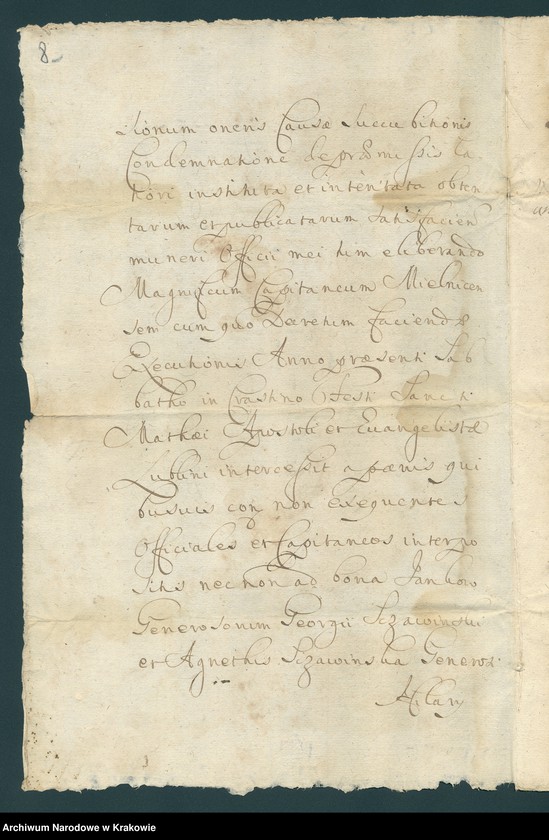 8
tionum oneris Causae Succubitionis
Condemnatione de praemissis la
tiori instituta et intentata obten
tarum et publicatarum satisfacien
muneri Officii mei tum eliberando
Magnificum Capitaneum Mielnicen
sem cum quo Decretum faciendae
Executionis Anno praesenti Sab
batho in Crastino Festi Sancti
Mathaei Apostoli et Evangelistae
Lublini intercessit a paenis qui
busuis con non exequentes
Officiales et Capitaneos interpo
sitis nec non ad bona Jankow
Generosorum Georgii Sczawinski
et Agnethis Sczawinska Generosi
Hilary
Archiwum Narodowe w Krakowie